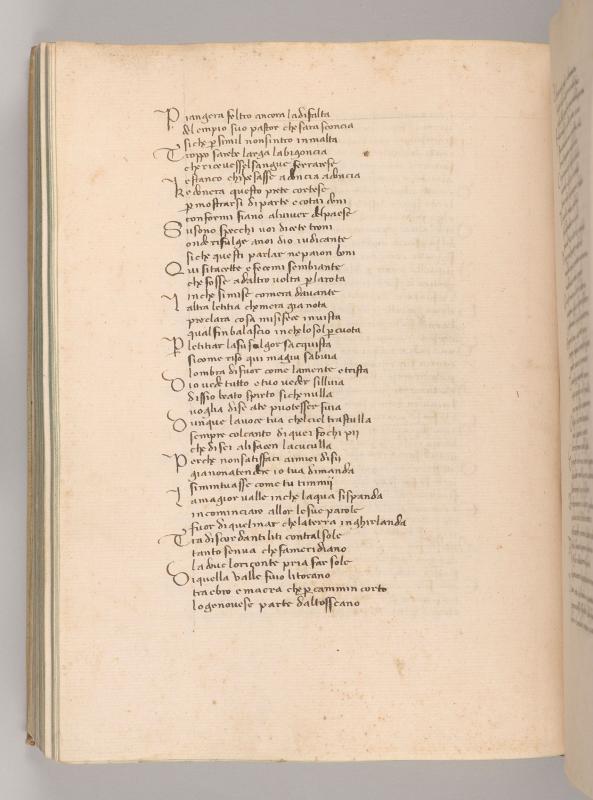 Piangera feltro ancora la difalta
del empio suo pastor che sara sconcia
si che p simil non sintro in malta
Troppo sarebe larga la bigoncia
che ricevesse l sangue ferrarese
e stanco chi pesasse a doncia a doncia
ke donera questo prete cortese
p mostrarsi di parte e cotai doni
conformi fiano al viver del paese
Su sono specchi voi dicete troni
onde rifulge a noi dio iudicante
si che questi parlar ne paion boni
Qui si tacette e fecemi sembiante
che fosse ad altro volta p la rota
in che si mise comera davante
Laltra letitia che mera gia nota
preclara cosa mi si fece in vista
qual fin balascio in che lo sol pcuota
P letitiar la su fulgor sacquista
si come riso qui ma giu sabuia
lombra di fuor come la mente e trista
Dio vede tutto e tuo veder silluia
dissio beato spirto si che nulla
voglia di se a te puotesser fuia
Dunque la voce tua chel ciel trastulla
sempre col canto di quei fochi pii
che di sei ali facen la cuculla
Perche non satisfaci ai miei disii
gia non atendere io tua dimanda
sio mintuasse come tu timmii
La magior valle in che laqua si spanda
incominciaro allor le sue parole
fuor di quel mar che la terra inghirlanda
Tra discordanti liti contral sole
tanto senva che fa meridiano
la dove lorizonte pria far sole
Di quella valle fuio litorano
tra ebro e macra che p cammin corto
lo genovese parte dal toscano